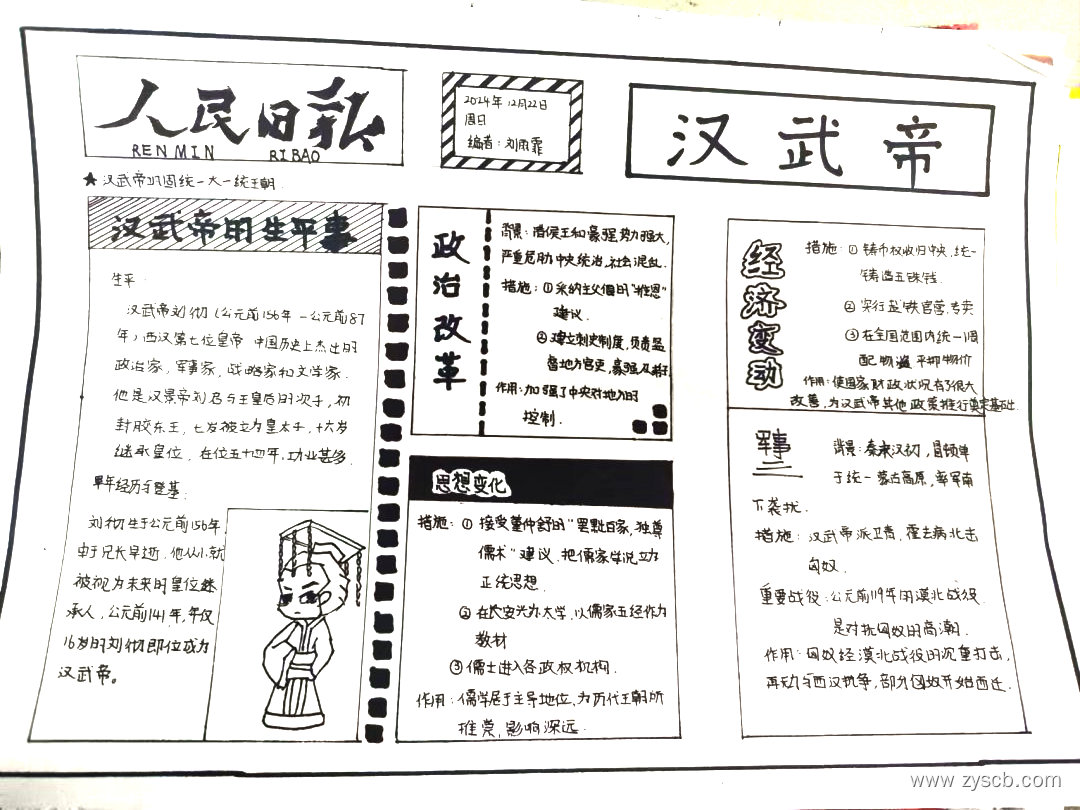 人民日报
REN MIN RI BAO
2024年12月22日
周日
编者：刘雨霏
汉武帝
★汉武帝巩固统一大一统王朝
汉武帝的生平事
生平
汉武帝刘彻（公元前156年-公元前87
年），西汉第七位皇帝 中国历史上杰出的
政治家，军事家，战略家和文学家.
他是汉景帝刘启与王皇后的次子，初
封胶东王，七岁被立为皇太子，十六岁
继承皇位，在位五十四年，功业甚多.
早年经历与登基:
刘彻生于公元前156年
由于兄长早逝，他从小就
被视为未来的皇位继
承人，公元前141年，年仅
16岁的刘彻即位成为
汉武帝。
政治改革
背景：诸侯王和豪强势力强大，
严重危胁中央统治，社会混乱.
措施：①采纳主父偃的“推恩”
建议.
②建立刺史制度，负责监
督地方官吏，豪强及
作用：加强了中央对地方的
控制.
思想变化
措施：①接受董仲舒的“罢黜百家，独尊
儒术”建议.把儒家学说立为
正统思想.
②在长安兴办太学，以儒家五经作为
教材
③儒士进入各政权机构.
作用：儒学居于主导地位，为历代王朝所
推崇，影响深远.
经济变动
措施：①铸币权收归中央，统一
铸造五铢钱.
②实行盐铁官营、专卖
③在全国范围内统一调
配物 平抑物价
作用：使国家财政状况有了很大
改善，为汉武帝其他政策推行奠定基础.
军事
背景：秦末汉初，冒顿单
于统一蒙古高原，率军南
下袭扰.
措施：汉武帝派卫青，霍去病北击
匈奴.
重要战役：公元前119年的漠北战役
是对抗匈奴的高潮.
作用：匈奴经漠北战役的沉重打击，
再无力与西汉抗争，部分匈奴开始西迁.
www.zyscb.com